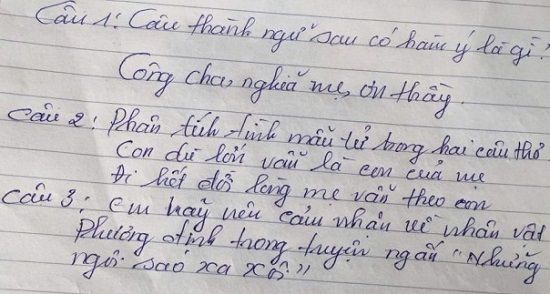 Câu 1: Câu thành ngữ sau có hàm ý là gì?
Công cha, nghĩa mẹ, ơn thầy.
Câu 2: Phân tích tình mẫu tử trong hai câu thơ
Con dù lớn vẫn là con của mẹ
Đi hết đời lòng mẹ vẫn theo con
Câu 3: Em hãy nêu cảm nhận về nhân vật
Phương Định trong truyện ngắn "Những
ngôi sao xa xôi"